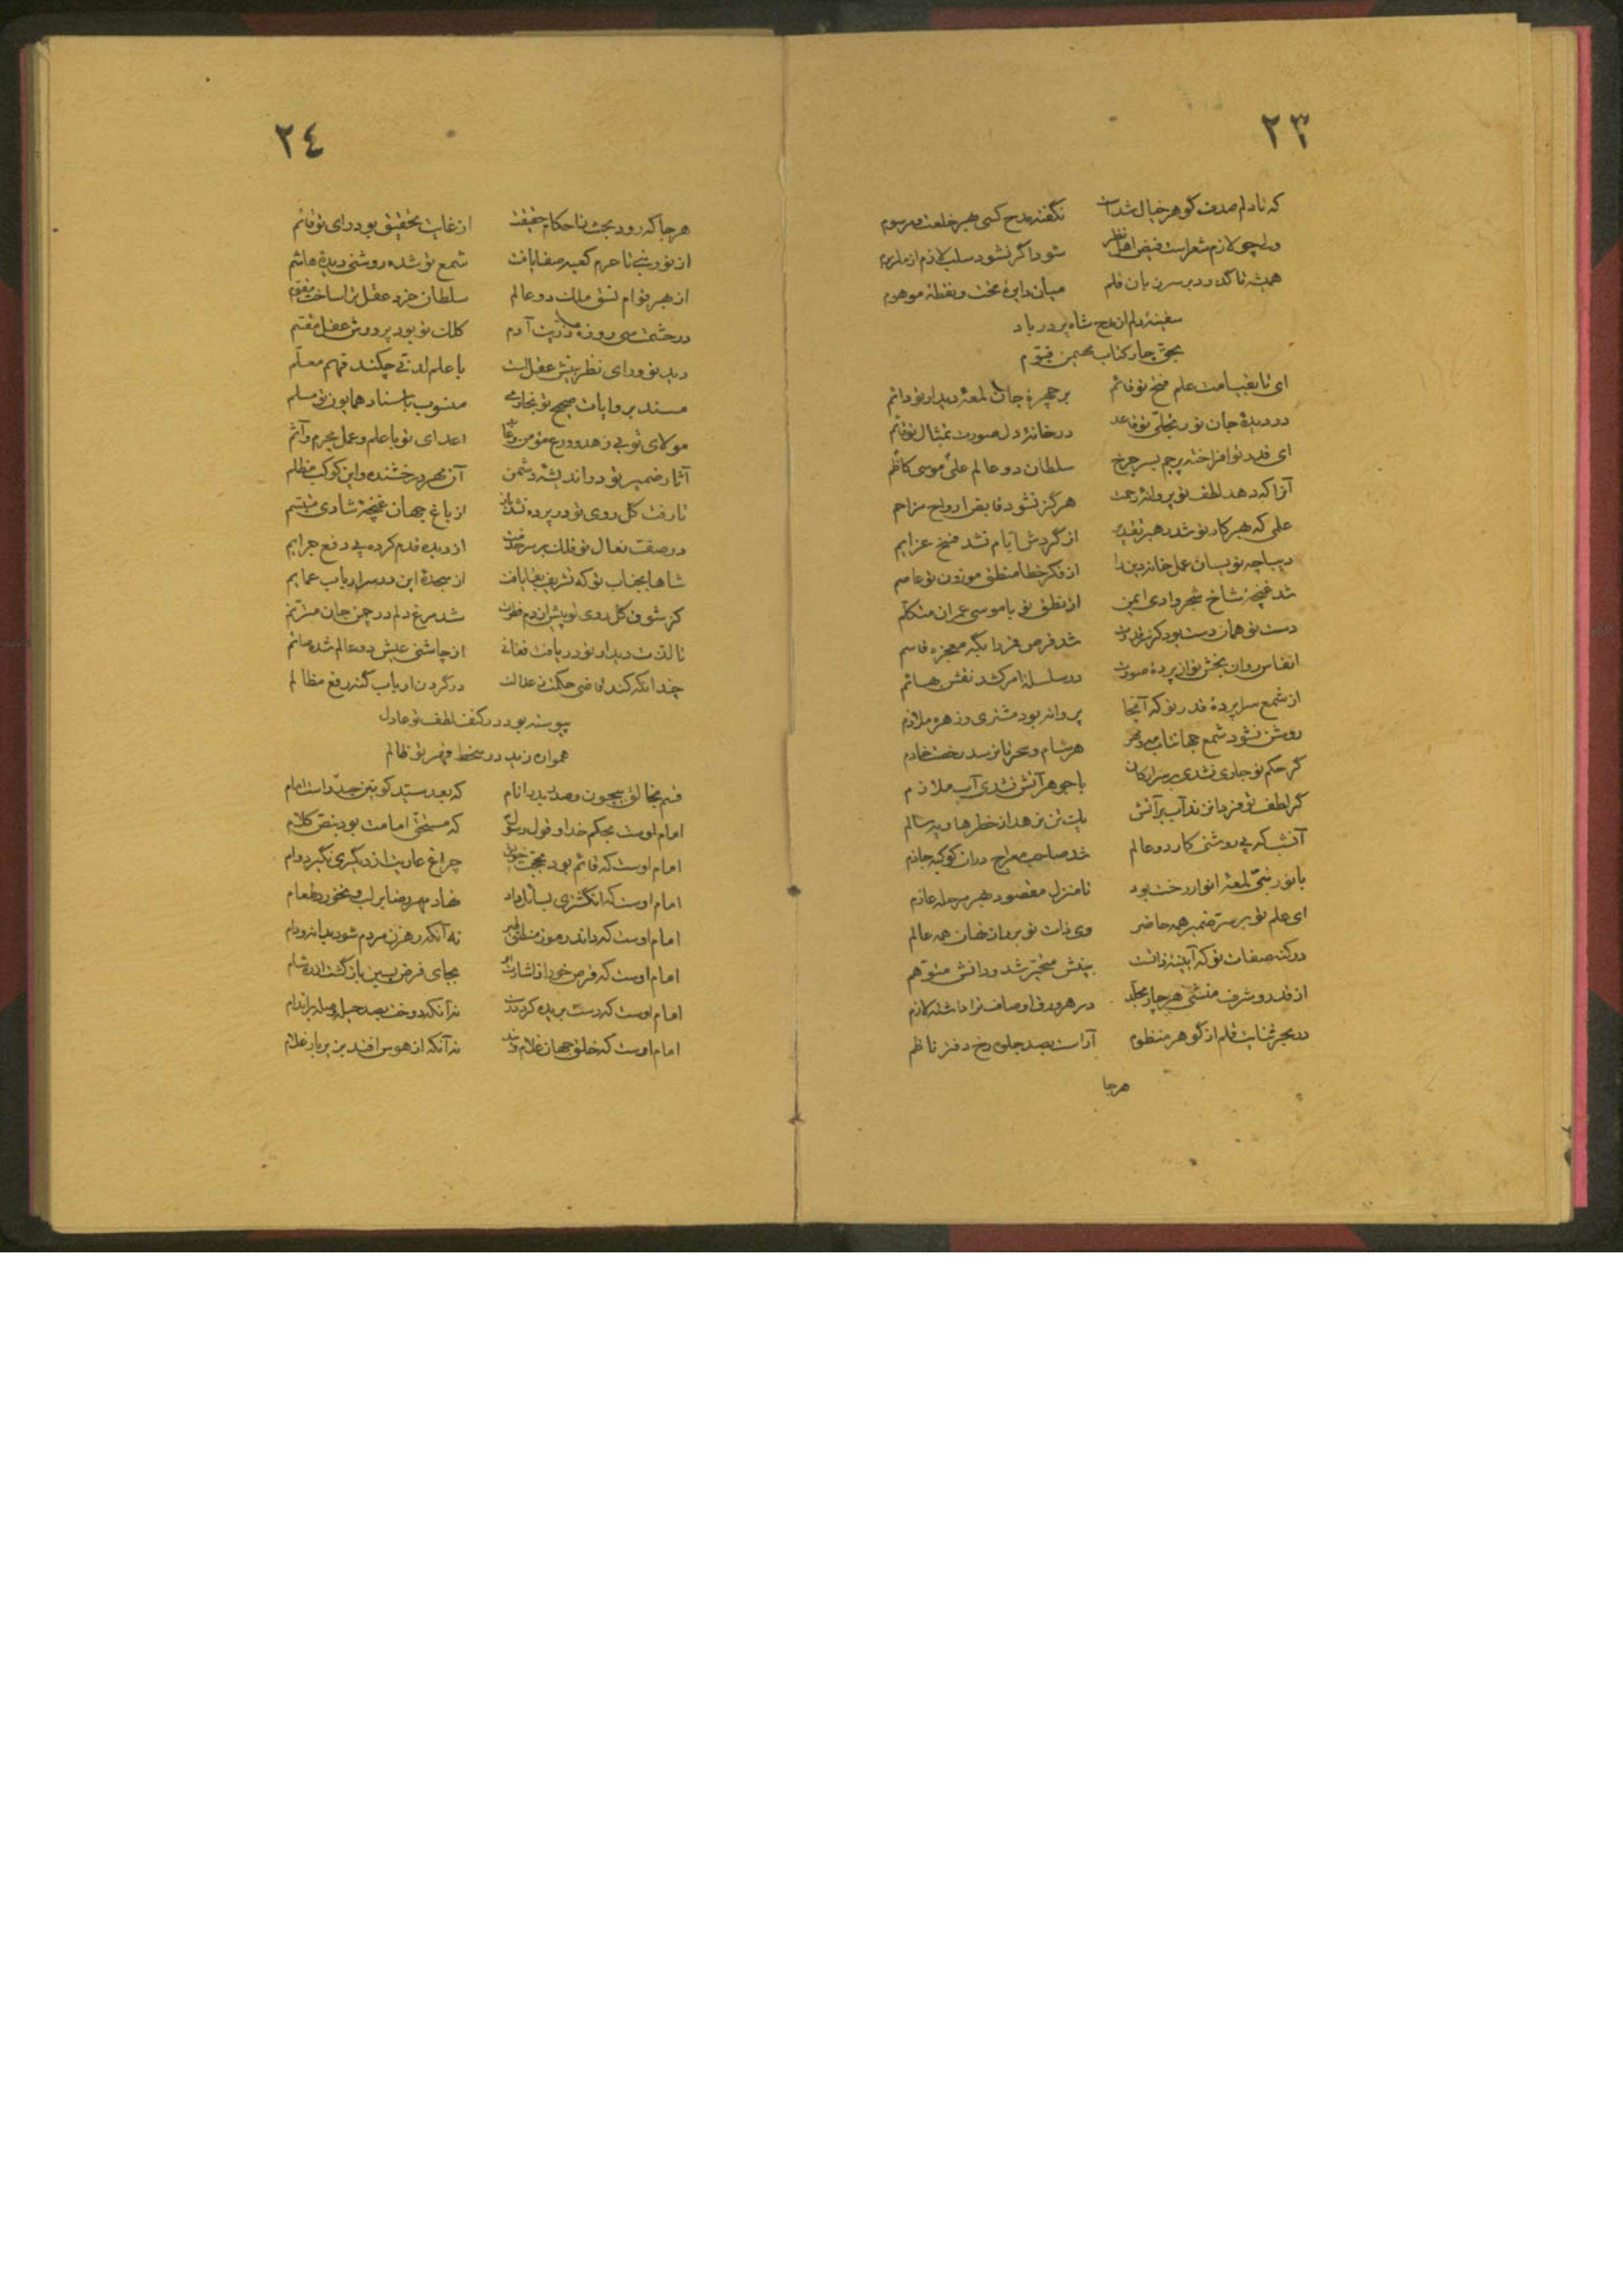 ٢٣
که تا دلم صدف گوهر خیال شداست نگفته مدح کسی بهر خلعت و مرسوم
ولی چو لازم شعر است فیض اهل نظر شود اگر نشود سلب لازم از ملزوم
همیشه تا گذرد بر سر زبان قلم میان دایرهٔ بخت و نقطهٔ موهوم
سفینهٔ دلم از مدح شاه پر در باد
بحق چار کتاب مهیمن قیوم
ای تا بقیامت علم فتح تو قائم بر چهرهٔ جان لمعهٔ دیدار تو دائم
در دیدهٔ جان نور تجلی تو قاعد در خانهٔ دل صورت تمثال تو قائم
ای قدر تو افراخته پرچم بسر چرخ سلطان دو عالم علی موسی کاظم
آنرا که دهد لطف تو پروانهٔ رحمت هرگز نشود قابض ارواح مزاحم
علمی که بهر کار تو شد رهبر تقدیر از گردش ایام نشد فسخ عزایم
دیباچه نویسان عمل خانهٔ دین را از فکر خطا منطق موزون تو عاصم
شد غنچهٔ شاخ شجر وادی ایمن از نطق تو با موسی عمران متکلم
دست تو همان دست بود کز ید قدرت شد قرص قمر را بگه معجزه قاسم
انفاس روان بخش تو از پردهٔ صورت در سلسلهٔ امر کشد نقش بهائم
از شمع سراپردهٔ قدر تو که آنجا پروانه بود مشتری و زهره ملازم
روشن نشود شمع جهانتاب مه و مهر هر شام و سحر تا نرسد رخصت خادم
گر حکم تو جاری نشدی بر سر ارکان با جوهر آتش نشدی آب ملازم
گر لطف تو فرد انزند آب بر آتش یک تن نرهد از خطر هاویه سالم
آنشب که پی روشنی کار دو عالم شد صاحب معراج در آن کوکبه جازم
با نور نبی لمعهٔ انوار رخت بود تا منزل مقصود بهر مرحله عازم
ای علم تو بر سر ضمیر همه حاضر وی ذات تو بر راز نهان همه عالم
در کنه صفات تو که آیینهٔ ذاتست بینش متحیر شد و دانش متوهم
از قدر و شرف منشی هر چار مجلد در هر ورق اوصاف ترا داشته لازم
در بحر ثنایت قلم از گوهر منظوم آراست بصد جلوه رخ دفتر ناظم
هرجا
٢٤
هرجا که رود بحث در احکام حقیقت از غایت تحقیق بود رای تو قائم
از نور نبی تا حرم کعبه صفا یافت شمع تو شده روشنی دیدهٔ هاشم
از بهر قوام نسق ملک دو عالم سلطان خرد عقل ترا ساخت مقوم
در حشمت سی روزهٔ ذریت آدم کلک تو بود بر روش عقل مقسم
دید تو ورای نظر بینش عقل است با علم لدنی چکند فهم معلم
مسند بروایات صحیح تو بخاری منسوب باسناد همایون تو مسلم
مولای تو بی زهد و ورع مؤمن و اعدای تو با علم و عمل مجرم و آثم
آثار ضمیر تو در اندیشهٔ دشمن آن مهر درخشنده و این کوکب مظلم
تا رفت گل روی تو در پرده نشد باز از باغ جهان غنچهٔ شادی متبسم
در صفت نعال تو فلک بر سر خدمت از دیده قدم کرده پی دفع جرایم
شاها بجناب تو که تشریف بقا یافت از سجدهٔ این در سر ارباب عمایم
کز شوق گل روی تو پیش از دم فطرت شد مرغ دلم در چمن جان مترنم
تا لذت دیدار تو دریافت فغانی از چاشنی عیش دو عالم شده صائم
چندانکه کند قاضی حکمت ز عدالت در گردن ارباب گنه رفع مظالم
پیوسته بود در کنف لطف تو عادل
همواره زید در سخط قهر تو ظالم
قسم بخالق بیچون و صدر بدر انام که بعد سید کونین حیدر است امام
امام اوست بحکم خدا و قول رسول که مستحق امامت بود بنص کلام
امام اوست که قائم بود بحجت خویش چراغ عاریت از دیگری نگیرد وام
امام اوست که انگشتری بسائل داد نهاد مهر رضا بر لب و نخورد طعام
امام اوست که داند رموز منطق طیر نه آنکه رهزن مردم شود بدانه و دام
امام اوست که قرص خور از اشارت او بجای فرض پسین بازگشت از ره شام
امام اوست که دست بریده کرد درست نه آنکه دوخت بصد حیله وصله بر اندام
امام اوست که خلق جهان غلام ویند نه آنکه از هوس افتد بزیر بار غلام